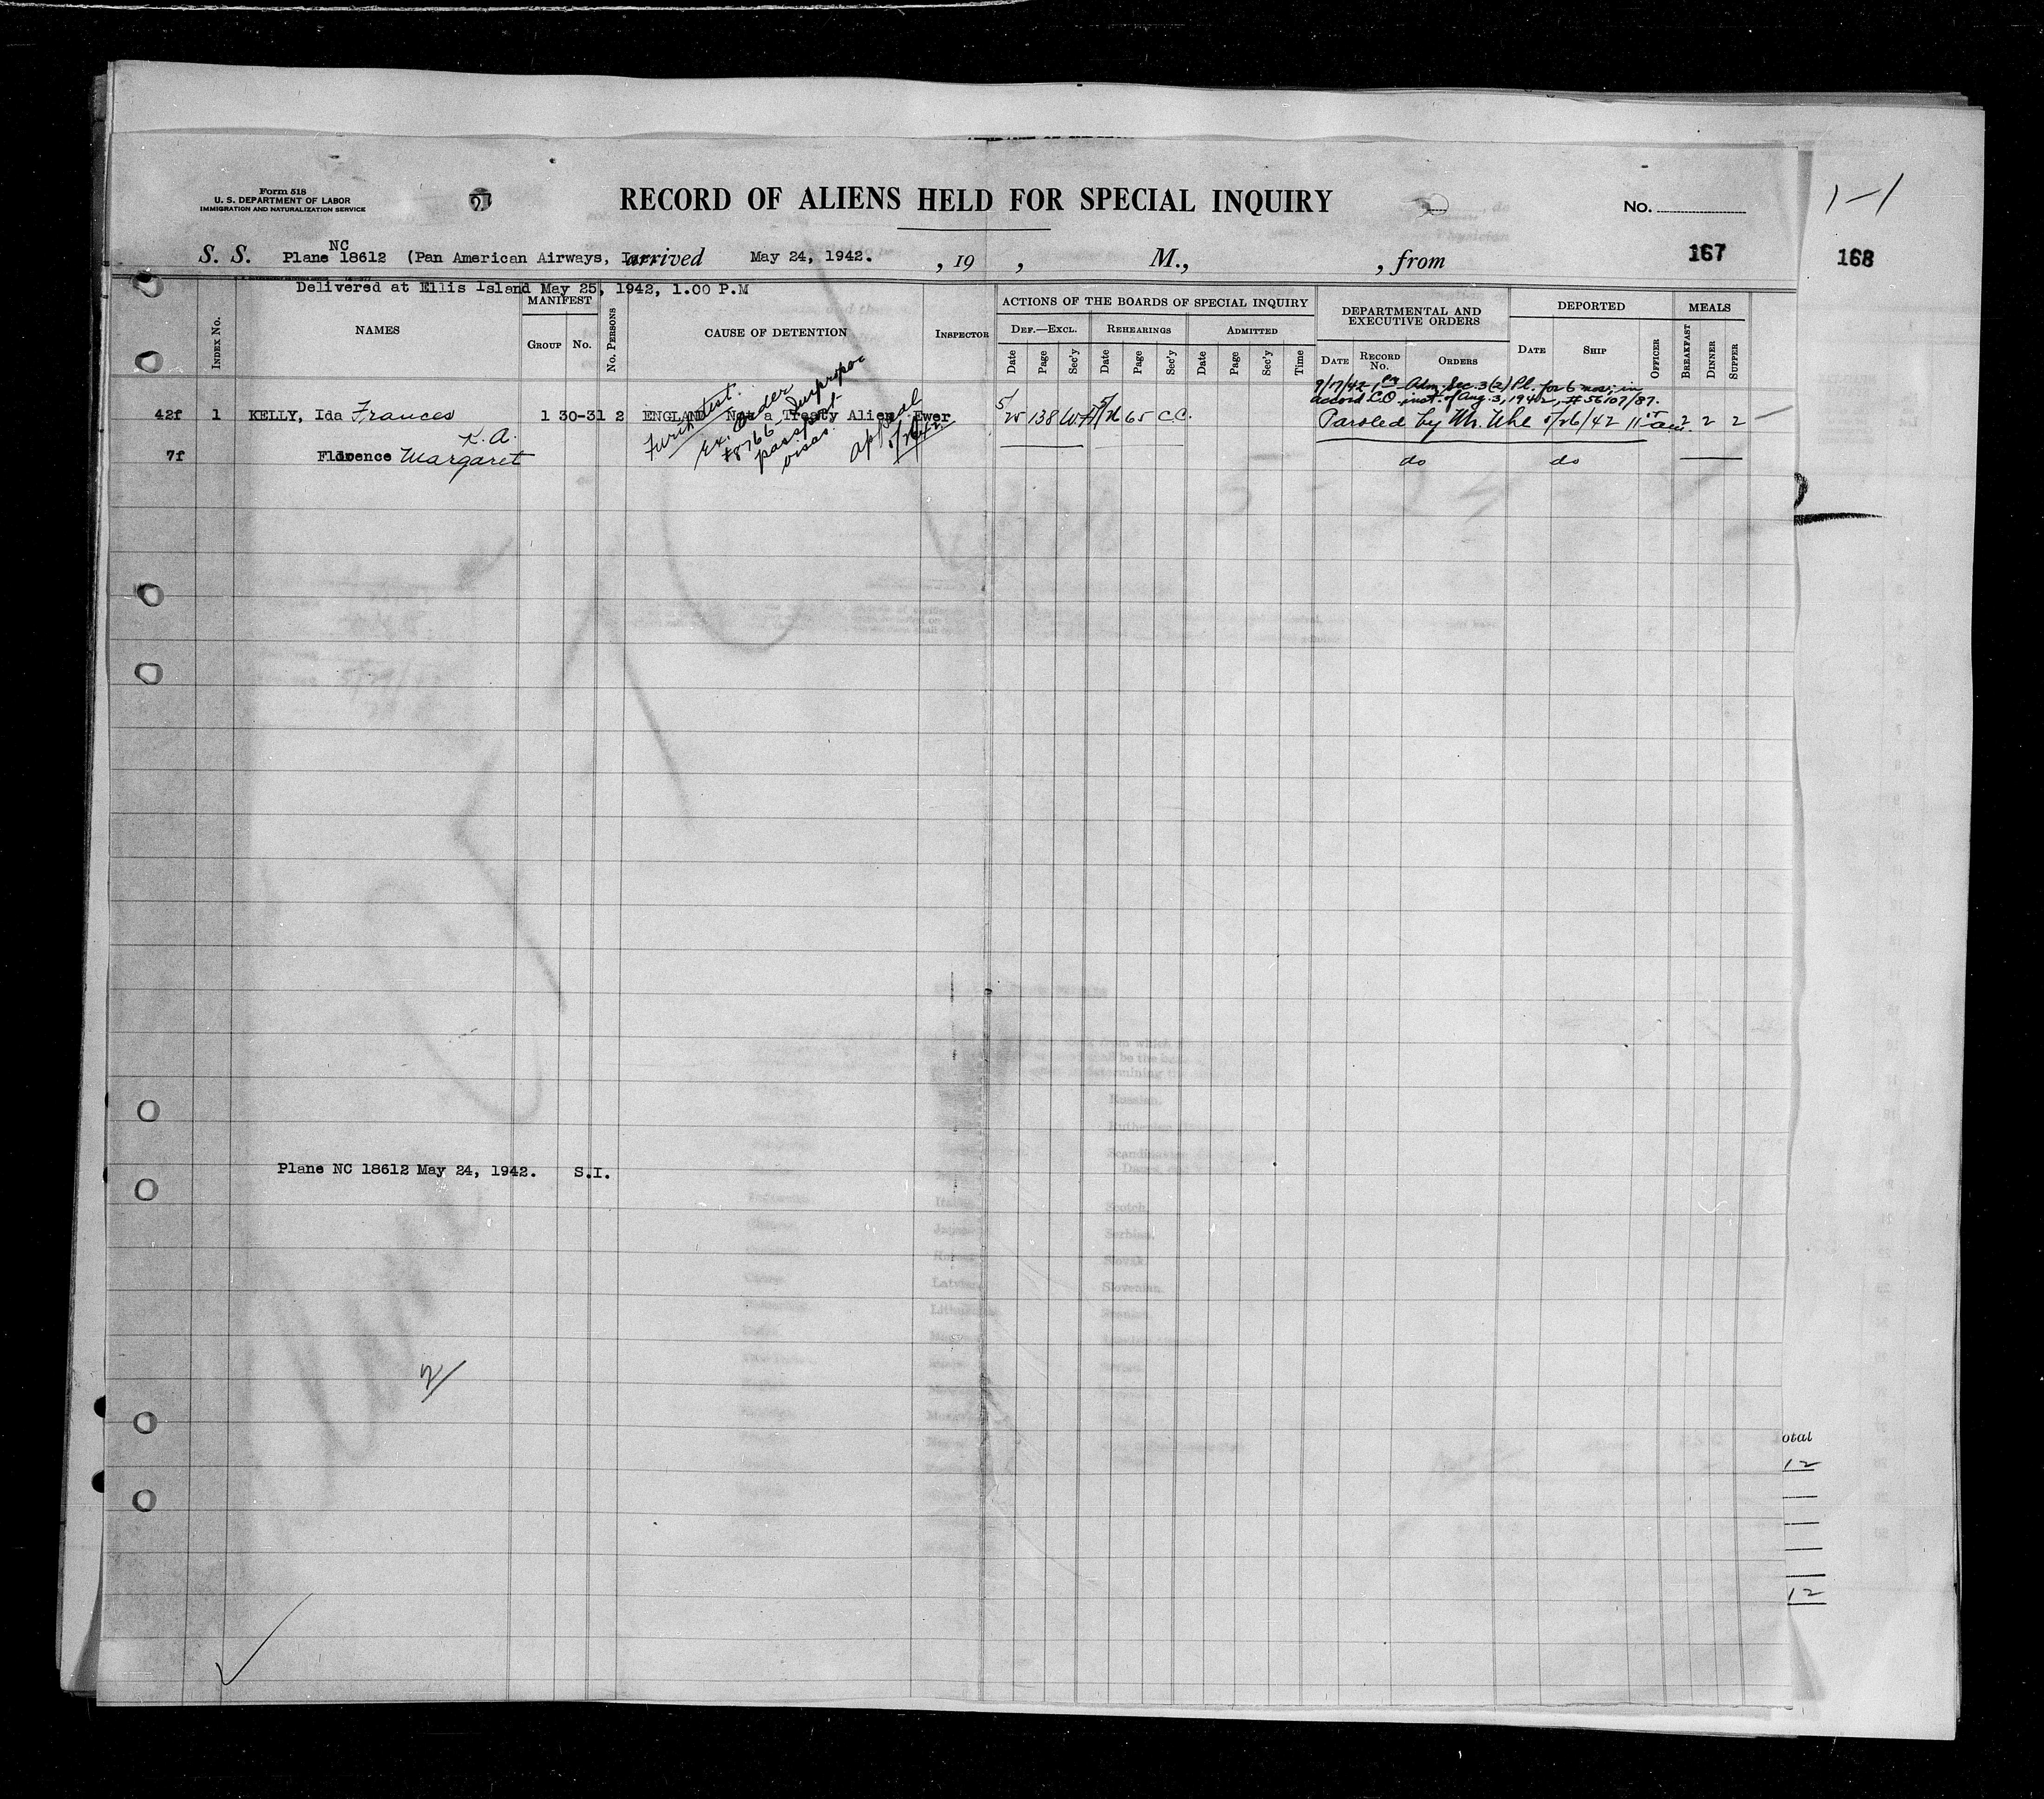 Form 518
U. S. DEPARTMENT OF LABOR
IMMIGRATION AND NATURALIZATION SERVICE
RECORD OF ALIENS HELD FOR SPECIAL INQUIRY
No.
1-1
S. S. Plane NC 18612 (Pan American Airways, arrived May 24, 1942. , 19 , M., , from
167
168
Delivered at Ellis Island May 25, 1942, 1.00 P.M
INDEX No. NAMES MANIFEST GROUP No. No. PERSONS CAUSE OF DETENTION INSPECTOR
ACTIONS OF THE BOARDS OF SPECIAL INQUIRY
DEF.—EXCL. REHEARINGS ADMITTED
Date Page Sec'y Date Page Sec'y Date Page Sec'y Time
DEPARTMENTAL AND EXECUTIVE ORDERS
DATE RECORD No. ORDERS
DEPORTED
DATE SHIP OFFICER
MEALS
BREAKFAST DINNER SUPPER
9/17/42 Adm. Sec. 3(2) Pl. for 6 mos; in
accord CO inst. of Aug. 3, 1942, # 56107/87.
42f 1 KELLY, Ida Frances 1 30-31 2 ENGLAND Not a Treaty Alien Ewer 5/25 138 5/26 65 C.C. Paroled by Mr. Uhl 5/26/42 2 2 2
Ex. Order
#8766
passport
visas.
appeal
5/26/42
K. A.
7f Florence Margaret do do
Plane NC 18612 May 24, 1942. S.I.
2/
otal
12
12